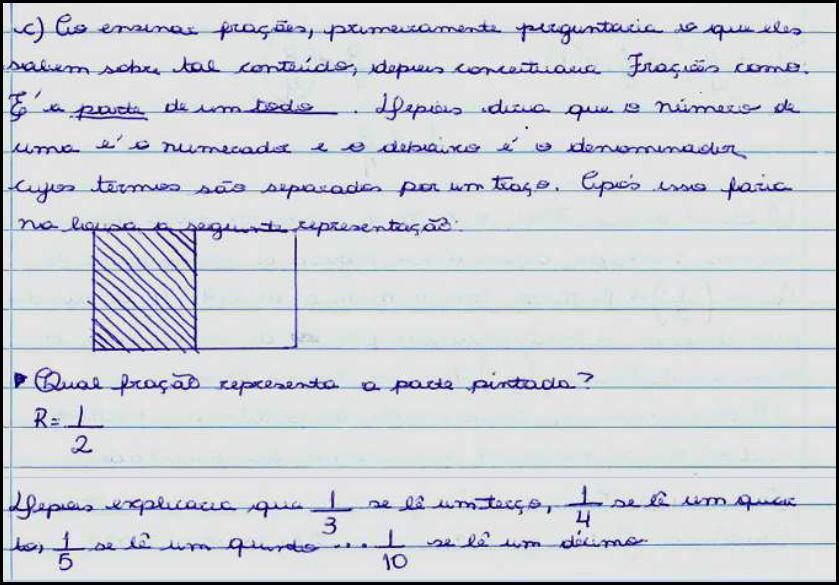 c) Ao ensinar frações, primeiramente perguntaria o que eles
sabem sobre tal conteúdo, depois conceituaria Frações como:
É a parte de um todo. Depois diria que o número de
uma é o numerador e o debaixo é o denominador,
cujos termos são separados por um traço. Após isso faria
na lousa a seguinte representação:
Qual fração representa a parte pintada?
R = 1/2
Depois explicaria que 1/3 se lê um terço, 1/4 se lê um quar
to, 1/5 se lê um quinto ... 1/10 se lê um décimo